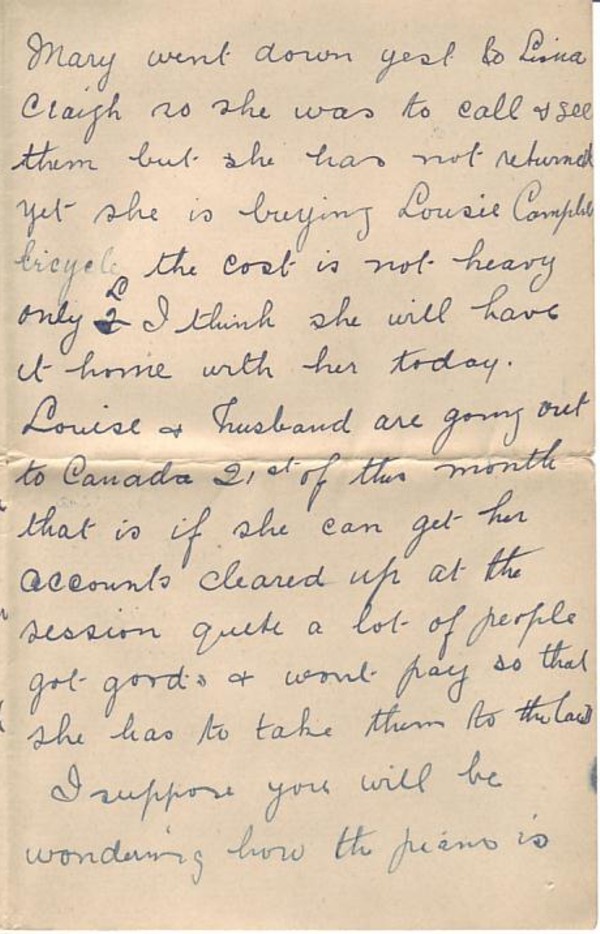 Mary went down yest to Lisna
Claigh so she was to call & see
them but she has not returned
yet she is buying Lousie Campbl
bicycle the cost is not heavy
only £2 I think she will have
it home with her today.
Louise & husband are going out
to Canada 21st of this month
that is if she can get her
accounts cleared up at the
session quite a lot of people
got goods & wont pay so that
she has to take them to the law
I suppose you will be
wondering how the piano is